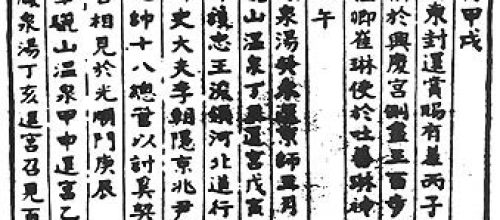 甲戌
東封還賞賜有差丙子
於興慶宮側
卿崔琳使於吐蕃琳神
午
泉湯癸亥還京師
山溫泉丁 還宮戊寅
忠王浚領河北道行
史大夫李朝隱京兆尹
帥十八總管以討奚契
官相見於光順門庚辰
驪山溫泉甲申還宮乙
溫泉湯丁亥還宮召見百